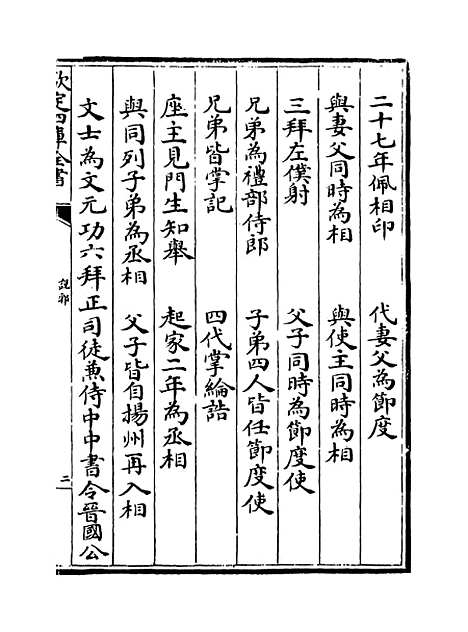 二十七年佩相印　代妻父為節度
與妻父同時為相　與使主同時為相
三拜左僕射　父子同時為節度使
兄弟為禮部侍郎　子弟四人皆任節度使
兄弟皆掌記　四代掌綸誥
座主見門生知舉　起家二年為丞相
與同列子弟為丞相　父子皆自揚州再入相
文士為文元功六拜正司徒兼侍中中書令晉國公
欽定四庫全書
說郛
二